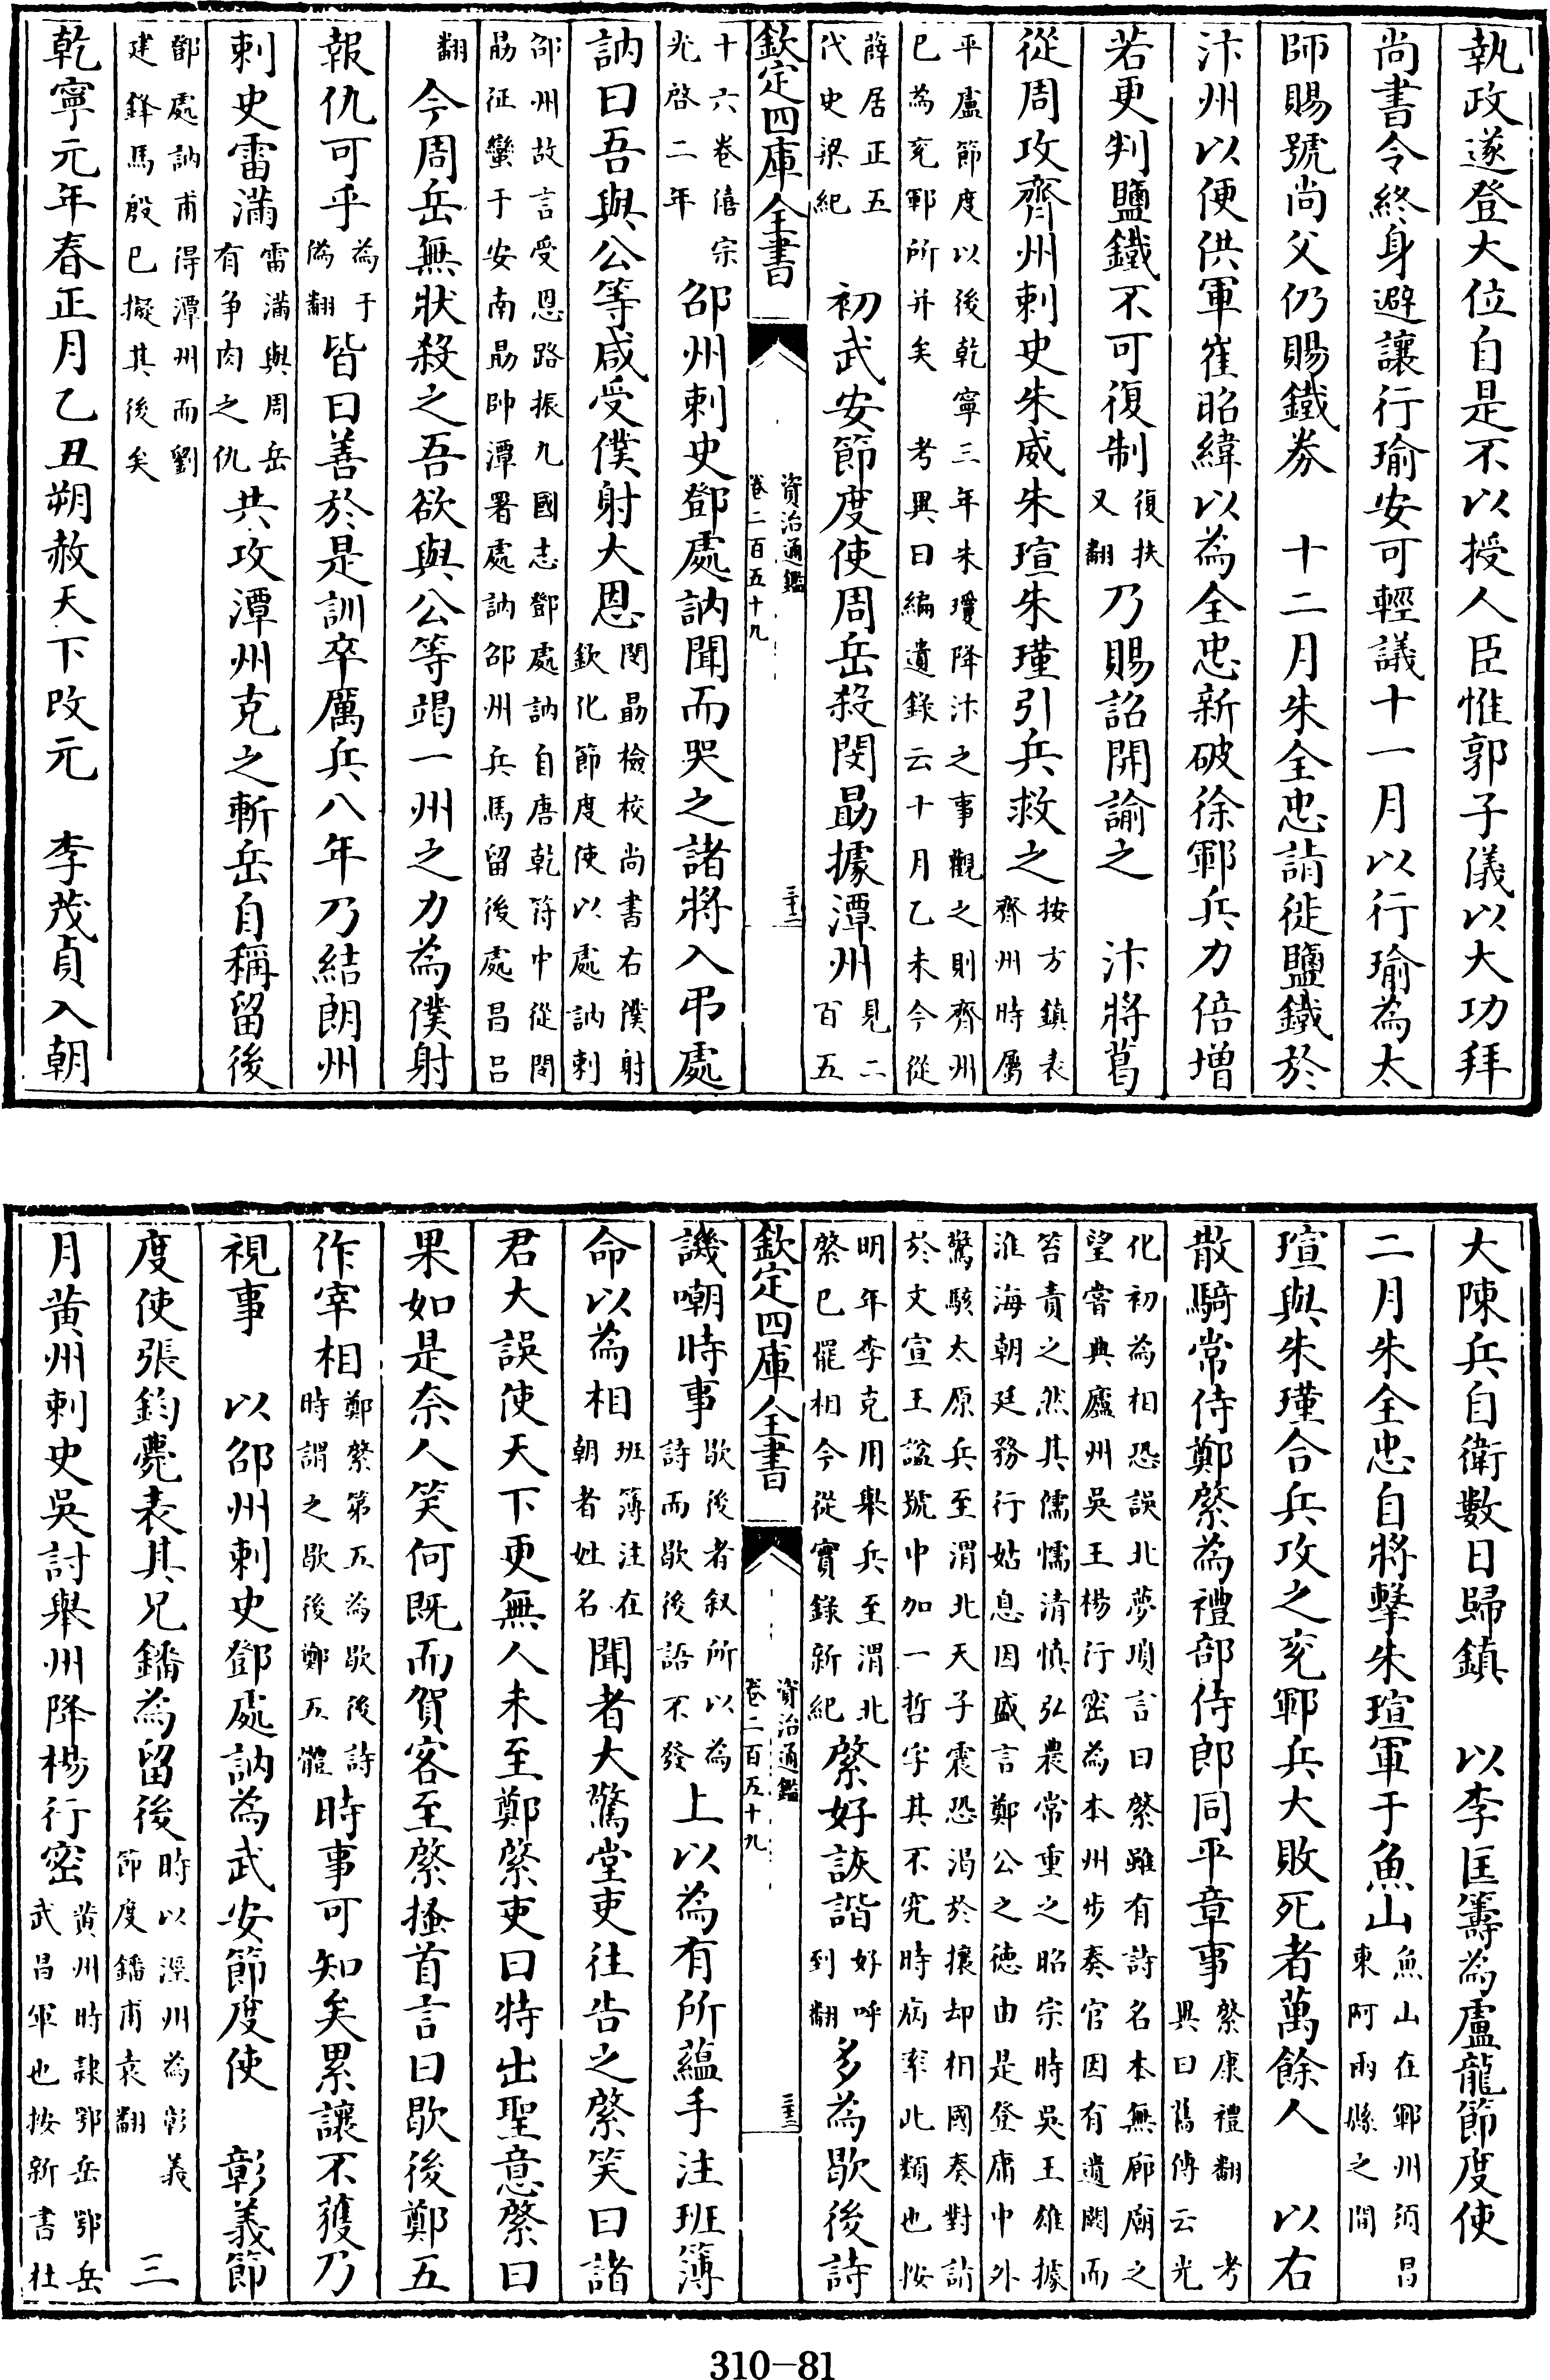 執政遂登大位自是不以授人臣惟郭子儀以大功拜
尚書令終身避讓行瑜安可輕議十一月以行瑜為太
師賜號尚父仍賜鐵券　十二月朱全忠請徙鹽鐵於
汴州以便供軍崔昭緯以為全忠新破徐鄆兵力倍增
若更判鹽鐵不可復制復扶又翻乃賜詔開諭之　汴將葛
從周攻齊州刺史朱威朱瑄朱瑾引兵救之按方鎮表齊州時屬
平盧節度以後乾寧三年朱瓊降汴之事觀之則齊州
已為兖鄆所并矣　考異曰編遺錄云十月乙未今從
薛居正五代史梁紀　初武安節度使周岳殺閔勗據潭州見二百五
欽定四庫全書　資治通鑑卷二百五十九　三十二
十六卷僖宗光啓二年邵州刺史鄧處訥聞而哭之諸將入弔處
訥曰吾與公等咸受僕射大恩閔勗檢校尚書右僕射欽化節度使以處訥刺
邵州故言受恩路振九國志鄧處訥自唐乾符中從閔
勗征蠻于安南勗帥潭署處訥邵州兵馬留後處昌呂
翻今周岳無狀殺之吾欲與公等竭一州之力為僕射
報仇可乎為于偽翻皆曰善於是訓卒厲兵八年乃結朗州
刺史雷滿雷滿與周岳有争肉之仇共攻潭州克之斬岳自稱留後
鄧處訥甫得潭州而劉
建鋒馬殷已擬其後矣
乾寧元年春正月乙丑朔赦天下改元　李茂貞入朝
大陳兵自衛數日歸鎮　以李匡籌為盧龍節度使
二月朱全忠自將擊朱瑄軍于魚山魚山在鄆州須昌東阿兩縣之間
瑄與朱瑾合兵攻之兖鄆兵大敗死者萬餘人　以右
散騎常侍鄭綮為禮部侍郎同平章事綮康禮翻　考異曰舊傳云光
化初為相恐誤北夢瑣言曰綮雖有詩名本無廊廟之
望嘗典廬州吳王楊行密為本州步奏官因有遺闕而
笞責之然其儒懦清慎弘農常重之昭宗時吳王雄據
淮海朝廷務行姑息因盛言鄭公之德由是登庸中外
驚駭太原兵至渭北天子震恐渴於攘却相國奏對請
於文宣王諡號中加一哲字其不究時病率此類也按
明年李克用舉兵至渭北綮已罷相今從實錄新紀綮好詼諧好呼到翻多為歇後詩
欽定四庫全書　資治通鑑卷二百五十九　三十三
譏嘲時事歇後者叙所以為詩而歇後語不發上以為有所蘊手注班簿
命以為相班簿注在朝者姓名聞者大驚堂吏往告之綮笑曰諸
君大誤使天下更無人未至鄭綮吏曰特出聖意綮曰
果如是奈人笑何既而賀客至綮搔首言曰歇後鄭五
作宰相鄭綮第五為歇後詩時謂之歇後鄭五體時事可知矣累讓不獲乃
視事　以邵州刺史鄧處訥為武安節度使　彰義節
度使張鈞薨表其兄鐇為留後時以涇州為彰義節度鐇甫袁翻　三
月黃州刺史吳討舉州降楊行密黃州時隸鄂岳鄂岳武昌軍也按新書杜
310-81